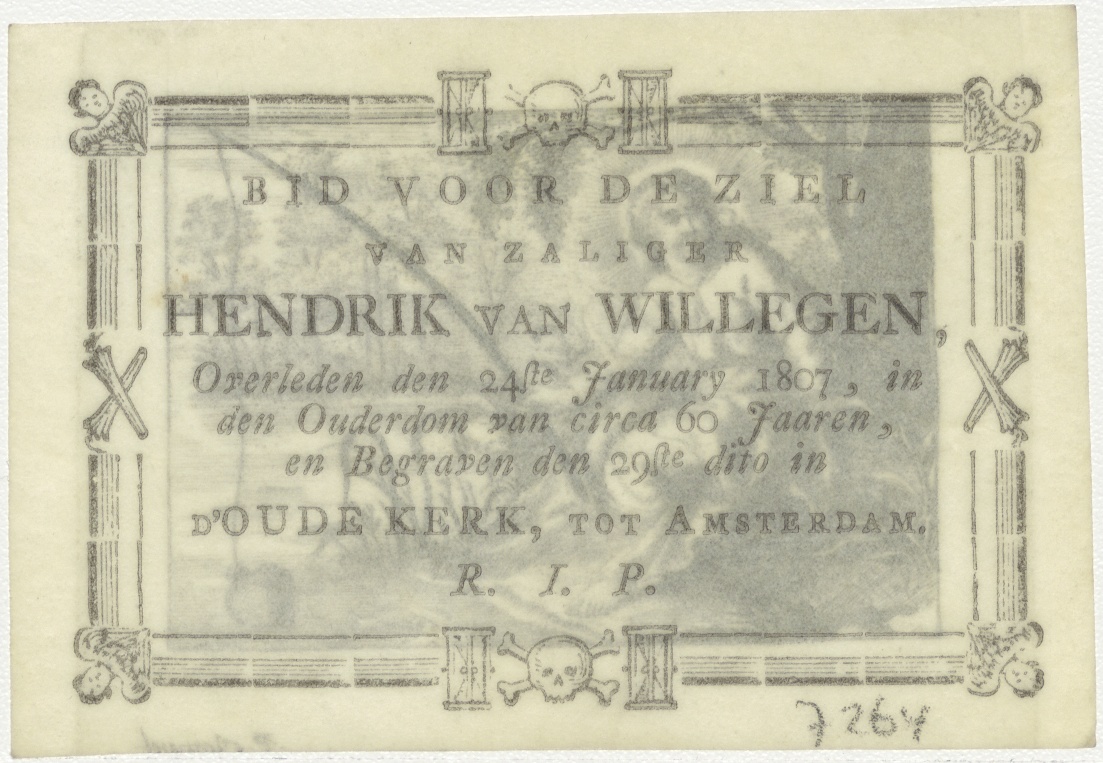 BID VOOR DE ZIEL
VAN ZALIGER
HENDRIK VAN WILLEGEN,
Overleden den 24ſte January 1807, in
den Ouderdom van circa 60 Jaaren,
en Begraven den 29ſte dito in
D'OUDE KERK, TOT AMSTERDAM.
R. I. P.
7264